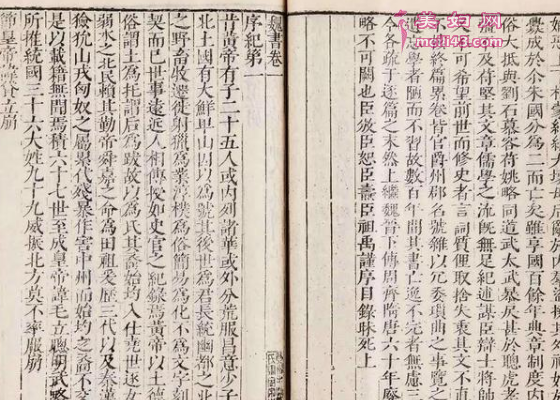 釁成於尒朱國分為二而亡矣雖享國百餘年典章制度内
俗大抵與劉石慕容苻姚略同道武太武暴戾甚於聰虎孝
彊不及苻堅其文章儒學之流既無足紀述謀臣辯士將帥
不可希望前世而修史者言詞質俚取捨失衷其文不直
不終篇累卷皆官爵州郡名號雜以冗委瑣曲之事覽之
忘學者陋而不習故數百年間其書亡逸不完者無慮三
今各疏于逐篇之末然上繼魏晉下傳周齊隋唐六十年廢
略不可闕也臣攽臣恕臣燾臣祖禹謹序目錄昧死上
魏書卷一
序紀第一
昔黃帝有子二十五人或内列諸華或外分荒服昌意少子
北土國有大鮮卑山因以為號其後世為君長統幽都之北
之野畜牧遷徙射獵為業淳樸為俗簡易為化不為文字刻
契而已世事遠近人相傳授如史官之紀錄焉黃帝以土德
俗謂土為托謂后為跋故以為氏其裔始均入仕堯世逐女
弱水之北民賴其勤帝舜嘉之命為田祖爰歷三代以及秦漢
獫狁山戎匈奴之屬累代殘暴作害中州而始均之裔不交
是以載籍無聞焉積六十七世至成皇帝諱毛立聰明武略
所推統國三十六大姓九十九威振北方莫不率服崩
節皇帝諱貸立崩
美妇网
meili43.com